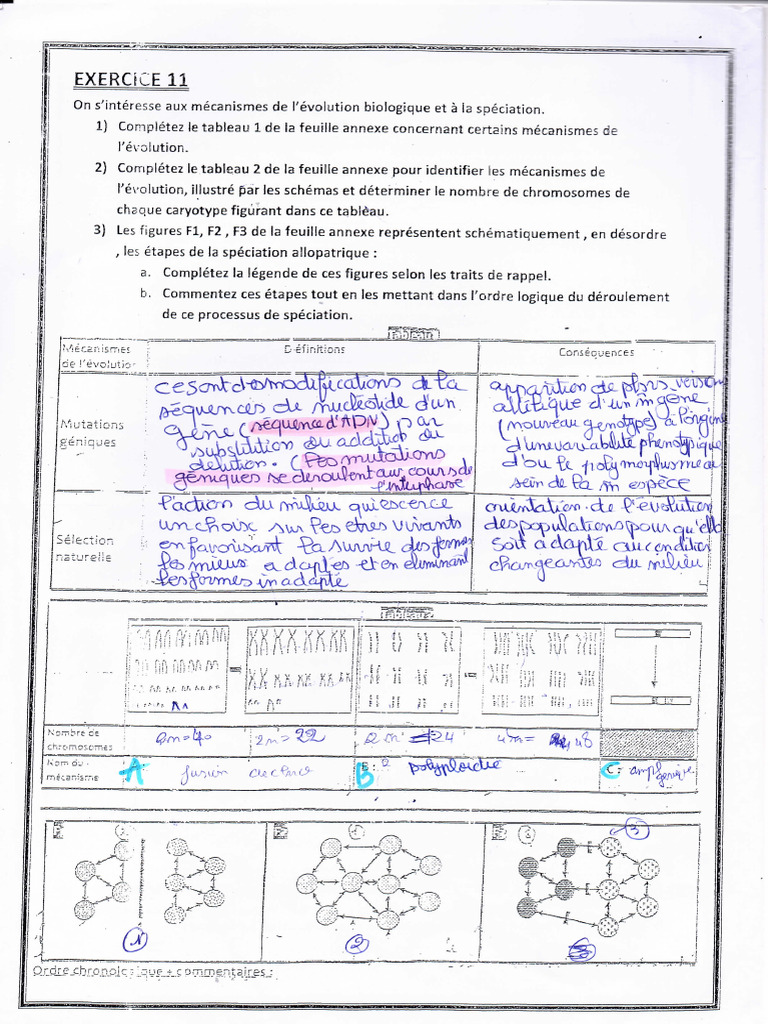 EXERCICE 11
On s'intéresse aux mécanismes de l'évolution biologique et à la spéciation.
1) Complétez le tableau 1 de la feuille annexe concernant certains mécanismes de
l'évolution.
2) Complétez le tableau 2 de la feuille annexe pour identifier les mécanismes de
l'évolution, illustré par les schémas et déterminer le nombre de chromosomes de
chaque caryotype figurant dans ce tableau.
3) Les figures F1, F2 , F3 de la feuille annexe représentent schématiquement , en désordre
, les étapes de la spéciation allopatrique :
a. Complétez la légende de ces figures selon les traits de rappel.
b. Commentez ces étapes tout en les mettant dans l'ordre logique du déroulement
de ce processus de spéciation.
Tableau 1
Mécanismes de l'évolution
Définitions
Conséquences
Mutations
géniques
ce sont des modifications de la
séquences de nucléotide d'un
gène (séquence d'ADN) par
substitution ou addition ou
délétion. (Les mutations
géniques se deroulent au cours de
l'interphase
apparition de plsrs version
allélique d'un m gène
(nouveau genotype) à l'origine
d'une variabilité phenotypique
d'où le polymorphisme au
sein de la m espèce
Sélection
naturelle
l'action du milieu qui exerce
un choix sur les etres vivants
en favorisant la survie des formes
les mieux adaptes et en eliminant
les formes inadapté
orientation de l'évolution
des populations pour qu'elle
soit adapté au condition
changeantes du milieu
Tableau 2
Nombre de
chromosomes
2n=40
2n=22
2n=24
4n= 48
Nom du
mécanisme
A
fusion
B
polyploidie
C : ampl
génique
3
1
2
Ordre chronologique + commentaires :